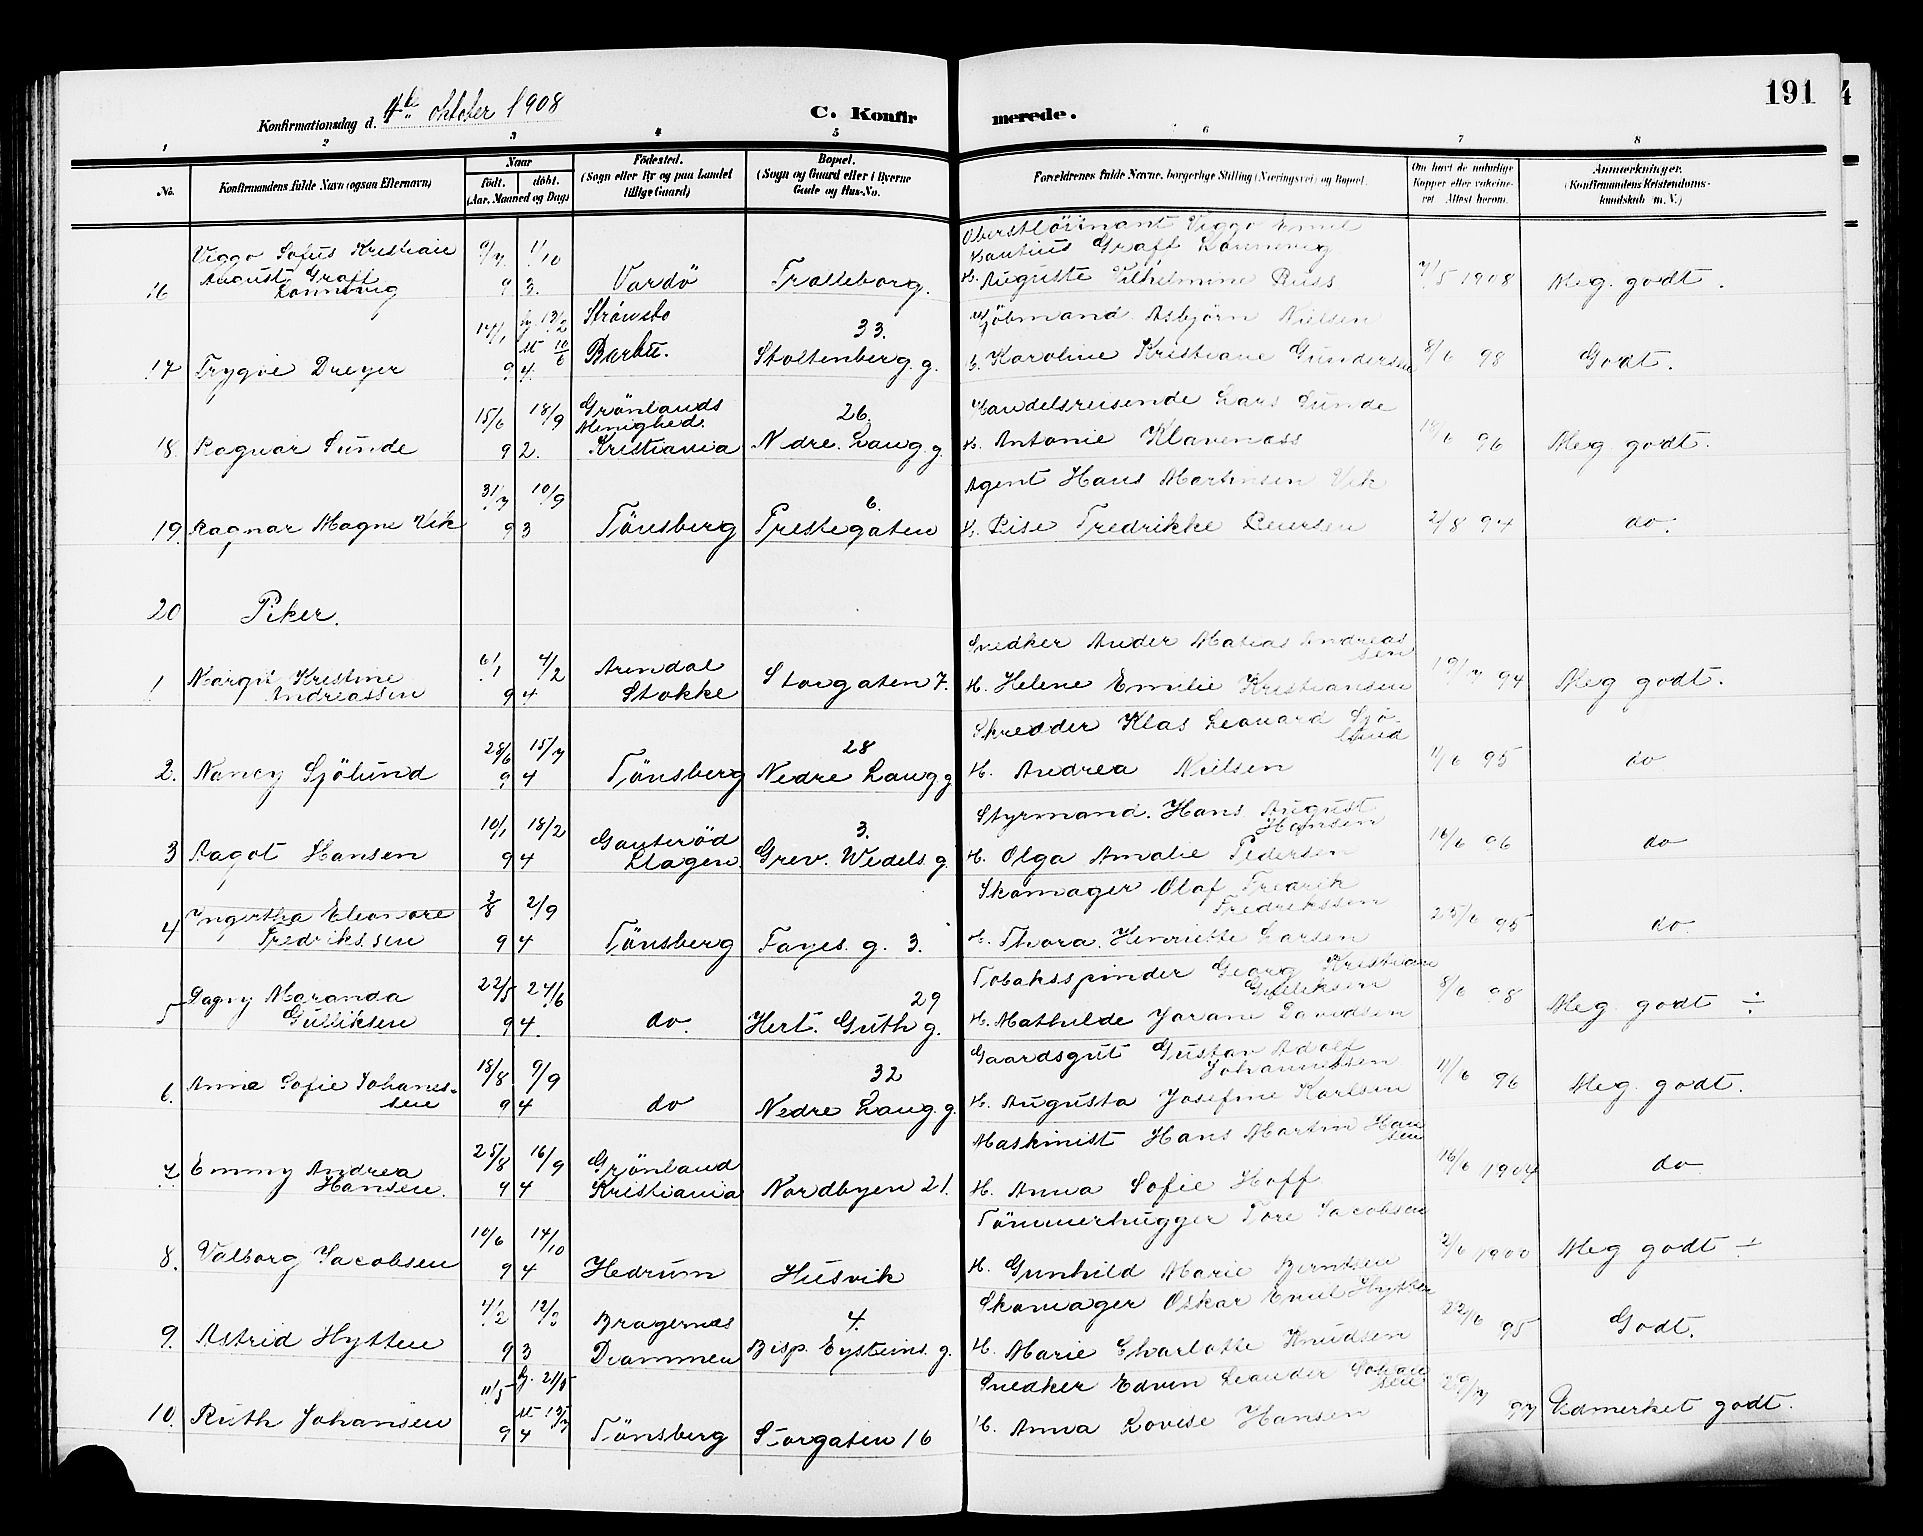 191
Konfirmationsdag d. 4de oktober 1908
C. Konfirmerede.
1 2 3 4 5 6 7 8
No. Konfirmandens fulde Navn (ogsaa Efternavn)
Naar
født. døbt.
(Aar, Maaned og Dag)
Födested.
(Sogn eller By og paa Landet
tillige Gaard)
Bopæl.
(Sogn og Gaard eller i Byerne
Gade og Hus-No.
Forældrenes fulde Navne, borgerlige Stilling (Næringsvei) og Bopæl.
Om havt de naturlige
Kopper eller vakcineret. Attest herom.
Anmærkninger.
(Konfirmandens Kristendoms-
kundskab m. V.)
Viggo Sofus Kristian 9/7 1/10 Oberstløitnant Viggo Emil
August Graff Graff Lønnevig
16 Lønnevig 9 3. Vardö Trælleborg. H. Auguste Vilhelmine Russ 7/5 1908 Meg. godt.
14/1 hj. 13/2 Strömsbo 33. Kjöbmand Asbjörn Nielsen
17 Trygve Dreyer 9 4. Barbu. Stoltenberg. g. H. Karoline Kristiane Gundersen 8/6 98 Godt.
15/6 18/9 Grönlands 26. Handelsreisende Lars Sunde
Menighed.
18. Ragnar Sunde 9 2. Kristiania Nedre. Laug. g. H. Antonie Klavenass 96 Meg godt.
31/7 10/9 6. Agent Hans Martinsen Vik
19. Ragnar Magne Vik 9 3 Tönsberg Prestegaten H. Lise Fredrikke 2/8 94 do.
20 Piker.
6/1 4/2 Arendal Snedker Ander Matias Andreassen
1 Margit Kristine Andreassen 9 4 Stokke Storgaten 7. H. Helene Emilie Kristiansen 19/7 94 Meg godt.
28/6 15/7 28 Skredder Klas Leonard Sjölund
2. Nancy Sjölund 9 4 Tönsberg Nedre Laug g H. Andrea Nielsen 1/6 95 do
10/1 18/2 Gauteröd 3. Styrmand. Hans August Hansen
3 Aagot Hansen 9 4 Slagen Grev. Wedels. g. H. Olga Amalie Pedersen 16/6 96 do
3/8 2/9 Skomager Olaf Fredrik Fredrikssen
4 Ingertha Eleonore Fredrikssen 9 4 Tönsberg Fayes. g. 3. H. Thora. Henriette Larsen 25/6 95 do.
22/5 24/6 29 Tobaksspinder Georg Kristian Gulliksen
5 Dagny Maranda Gulliksen 9 4. do. Hert. Guth g. H. Mathilde Davidsen 8/6 98 Meg godt ÷
18/8 9/9 32 Gaardsgut Gustav Adolf Johannessen
6. Anna Sofie Johannessen 9 4 do Nedre Laug. g. H. Augusta Josefine Karlsen 11/6 96 Meg godt.
25/8 16/9 Grönland Maskinist Hans Martin Hansen
7 Emmy Andrea Hansen. 9 4 Kristiania Nordbyen 21. H. Anna Sofie Hoff 16/6 1904 do
10/6 14/10 Tömmerhugger Tore Jacobsen
8. Valborg Jacobsen 9 4 Hedrum Husvik H. Gunhild Marie Berntsen 2/6 1900 Meg godt ÷
4/2 12/3 Bragernes 4. Skomager Oskar Emil Hytten
9. Astrid Hytten 9 3 Drammen Bisp. Eysteins. g. H. Marie Charlotte Knudsen 22/6 95 Godt.
11/5 hj. 21/5 Snedker Edvin Leander Johansen
10. Ruth Johansen 9 4 Tönsberg Storgaten 16 H. Anna Lovise Hansen 29/7 97 Udmerket godt.